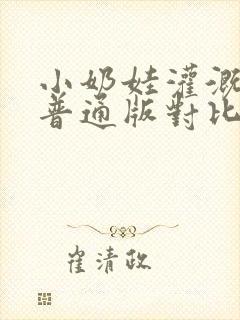 小奶娃灌溉
普通版對比
崔清政